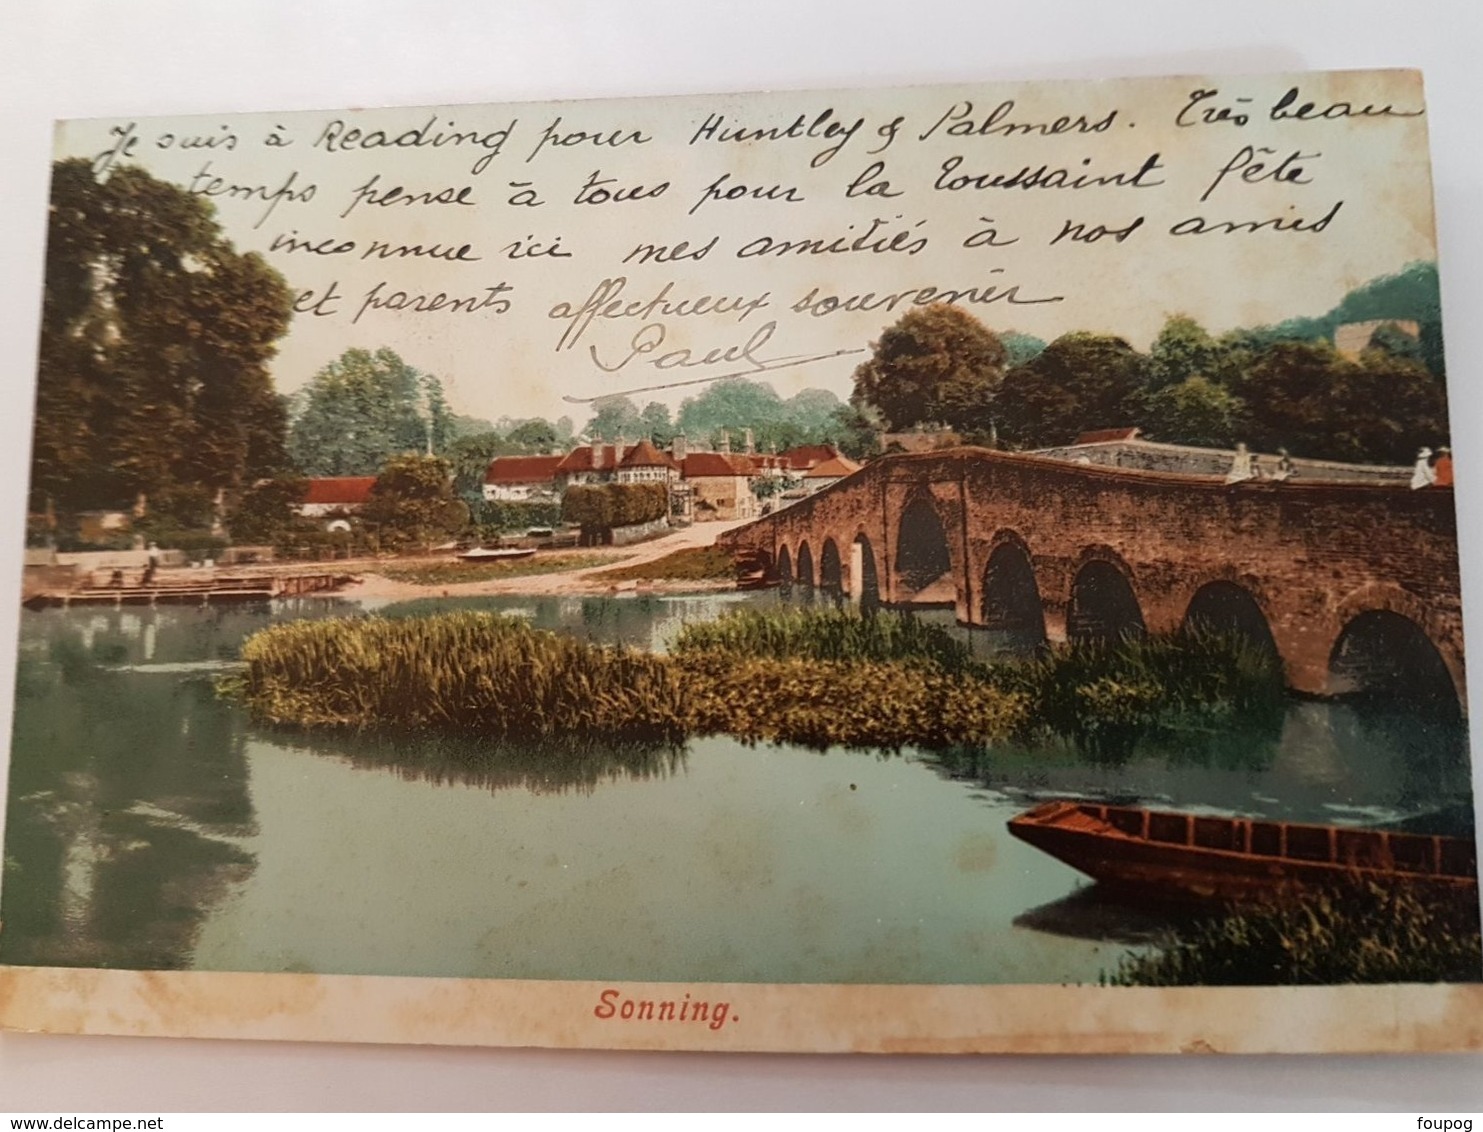 Je suis à Reading pour Huntley & Palmers. Très beau
temps pense à tous pour la Toussaint fête
inconnue ici mes amitiés à nos amis
et parents affectueux souvenir
Paul
Sonning.
www.delcampe.net
foupog